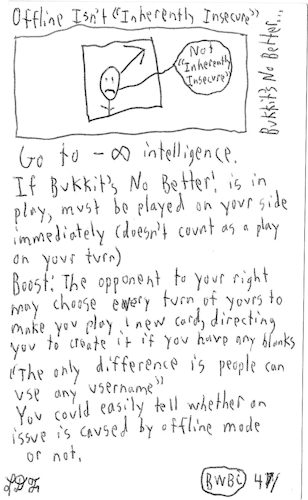 Offline Isn't "Inherently Insecure"
Bukkit's No Better...
Not
"Inherently
Insecure"
Go to -∞ intelligence.
If Bukkit's No Better! is in
play, must be played on your side
immediately (doesn't count as a play
on your turn)
Boost: The opponent to your right
may choose every turn of yours to
make you play 1 new card, directing
you to create it if you have any blanks
"The only difference is people can
use any username"
You could easily tell whether an
issue is caused by offline mode
or not.
BWBi